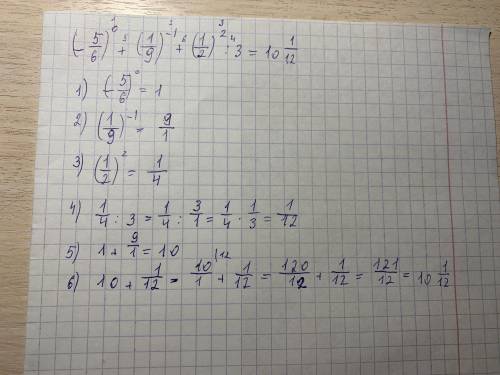 (-5/6)^0 + (1/9)^-1 + (1/2)^2 : 3 = 10 1/12
1) (-5/6)^0 = 1
2) (1/9)^-1 = 9/1
3) (1/2)^2 = 1/4
4) 1/4 : 3 = 1/4 : 3/1 = 1/4 · 1/3 = 1/12
5) 1 + 9/1 = 10
6) 10 + 1/12 = 10/1 \12 + 1/12 = 120/12 + 1/12 = 121/12 = 10 1/12